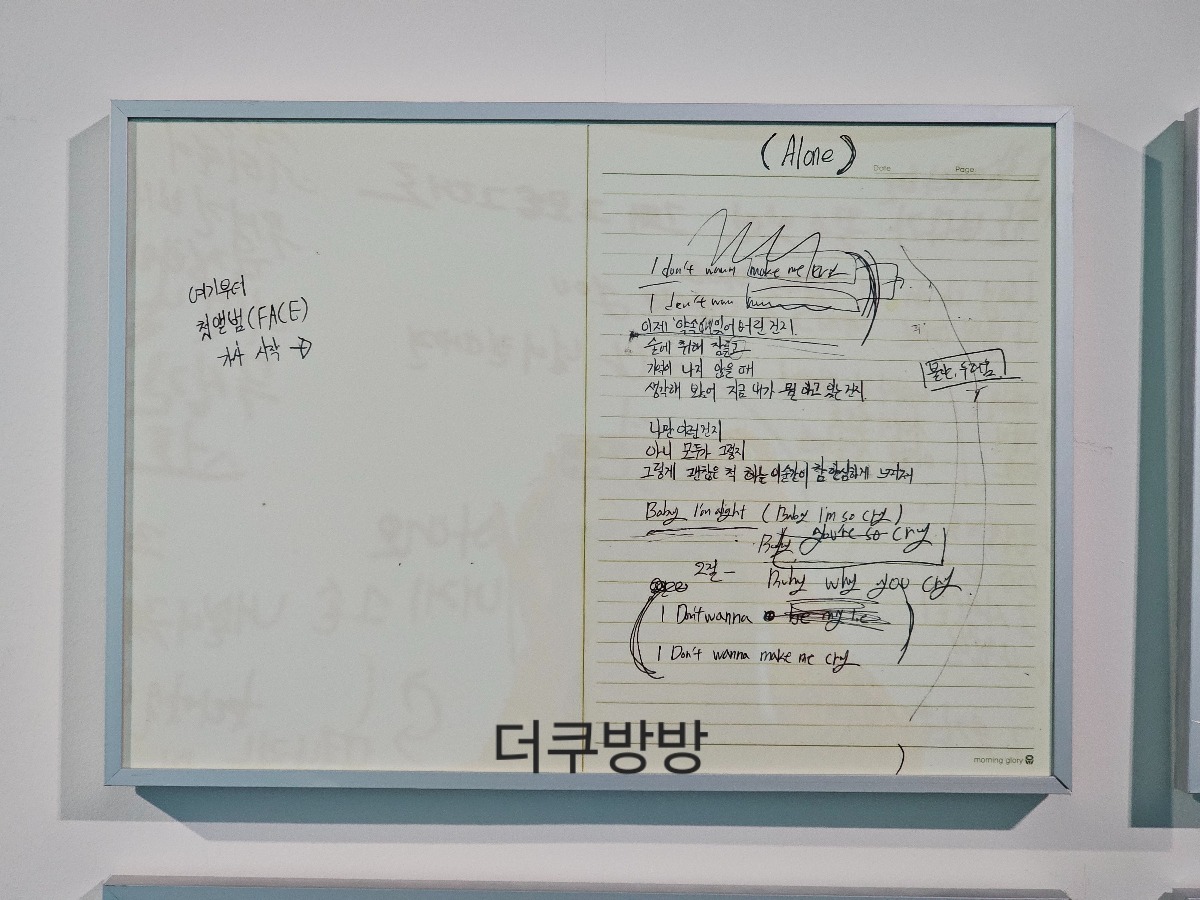 여기부터
첫앨범(FACE)
시작 →
(Alone)
Date
Page
I don't wanna make me cry
I don't wan
이제 약속해 잊어버린 건지
술에 취해 잠들고
기억이 나지 않을 때
생각해 보았어 지금 내가 뭘 하고 있는건지
나만 이런건지
아니 모두가 그렇지
그렇게 괜찮은 척 하는 이순간이 참 한심하게 느껴져
Baby I'm alright (Baby I'm so cry)
Baby you're so cry
2절 -
Baby why you cry
I Don't wanna be my
I Don't wanna make me cry
morning glory
더쿠방방